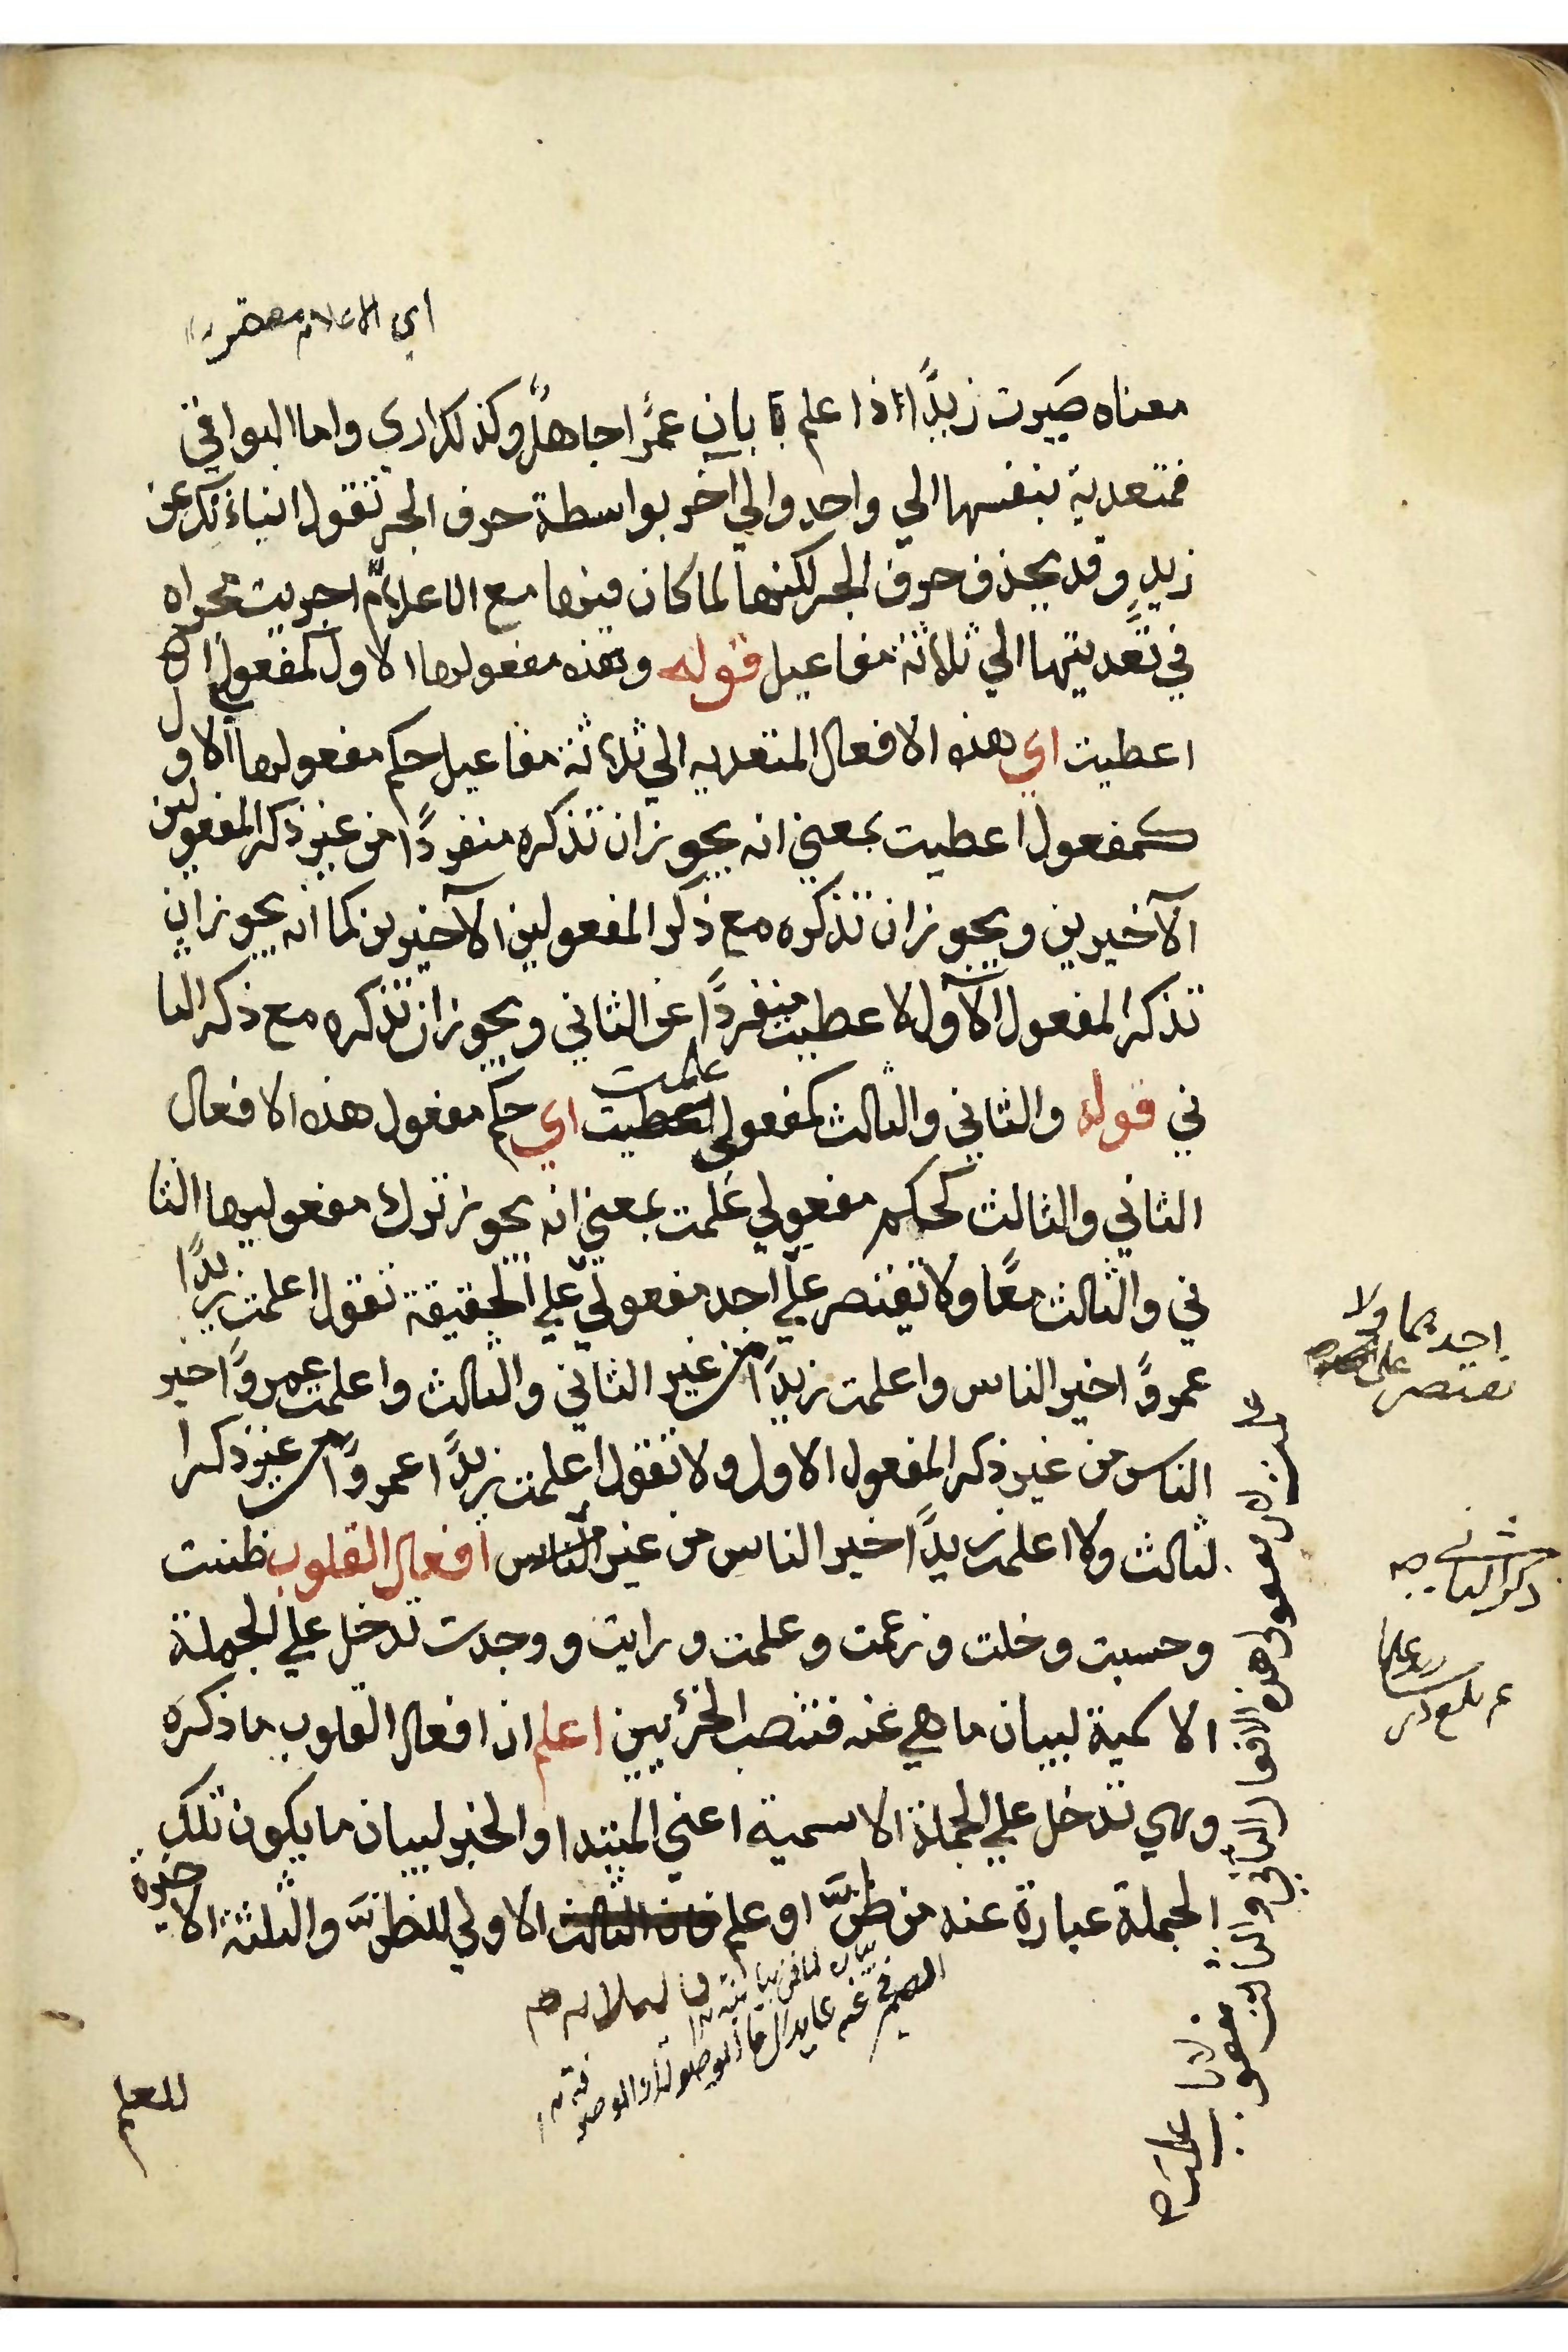 اي الاعلام
معناه صيرت زيدًا اذا علم بان عمرًا جاهلًا وكذلك اري واما البواقي
فمتعدية بنفسها الي واحد والي آخر بواسطة حرف الجر تقول انباءتك عن
زيدٍ وقد يحذف حرف الجر لكنها لما كان فيها مع الاعلام اجريت مجراه
في تعديتها الي ثلاثة مفاعيل قوله وهذه مفعولها الاول كمفعول
اعطيت اي هذه الافعال المتعديه الي ثلاثة مفاعيل حكم مفعولها الاول
كمفعول اعطيت بمعني انه يجوز ان تذكره منفردًا من غير ذكر المفعولين
الآخيرين ويجوز ان تذكره مع ذكر المفعولين الآخيرين كما انه يجوز ان
تذكر المفعول الآول لاعطيت منفردًا عن الثاني ويجوز ان تذكره مع ذكر الثا
ني قوله والثاني والثالث كمفعولي علمت اي حكم مفعول هذه الافعال
الثاني والثالث كحكم مفعولي علمت بمعني انه يجوز ترك مفعوليها الثا
ني والثالث معًا ولا تقتصر علي احد مفعولي علي الحقيقة تقول اعلمت زيدًا
عمروًا خير الناس واعلمت زيدًا من غير الثاني والثالث واعلمت عمروًا خير
الناس من غير ذكر المفعول الاول ولا تقول اعلمت زيدًا عمروًا من غير ذكر ا
لثالث ولا اعلمت زيدًا خير الناس من غير الناس افعال القلوب ظننت
وحسبت وخلت وزعمت وعلمت ورايت ووجدت تدخل علي الجملة
الاسمية لبيان ما هي عنه فتنصب الجزئيين اعلم ان افعال القلوب ما ذكره
وهي تدخل علي الجملة الاسمية اعني المبتدا والخبر لبيان ما يكون تلك
الجملة عبارة عنه من ظنّ او علم فان الثالث الاولي للظنّ والثلثة الاخيرة
احديهما ولا
يقتصر علي
ذكر الثاني صح
هذه الافعال الثاني والثالث
مفعولا علمت
الضمير في عنه عايد الي ما الموصولة او الموصوفة
للعلم